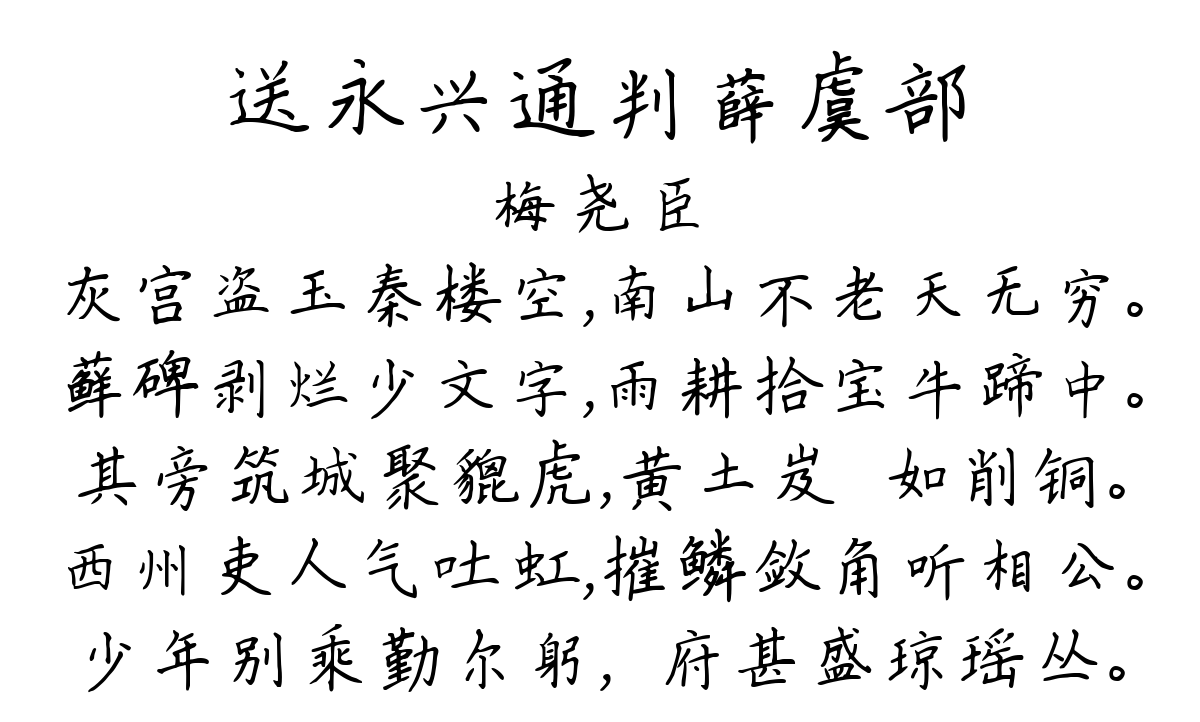 送永兴通判薛虞部
梅尧臣
灰宫盗玉秦楼空,南山不老天无穷。
藓碑剥烂少文字,雨耕拾宝牛蹄中。
其旁筑城聚貔虎,黄土岌 如削铜。
西州吏人气吐虹,摧鳞敛角听相公。
少年别乘勤尔躬，府甚盛琼瑶丛。